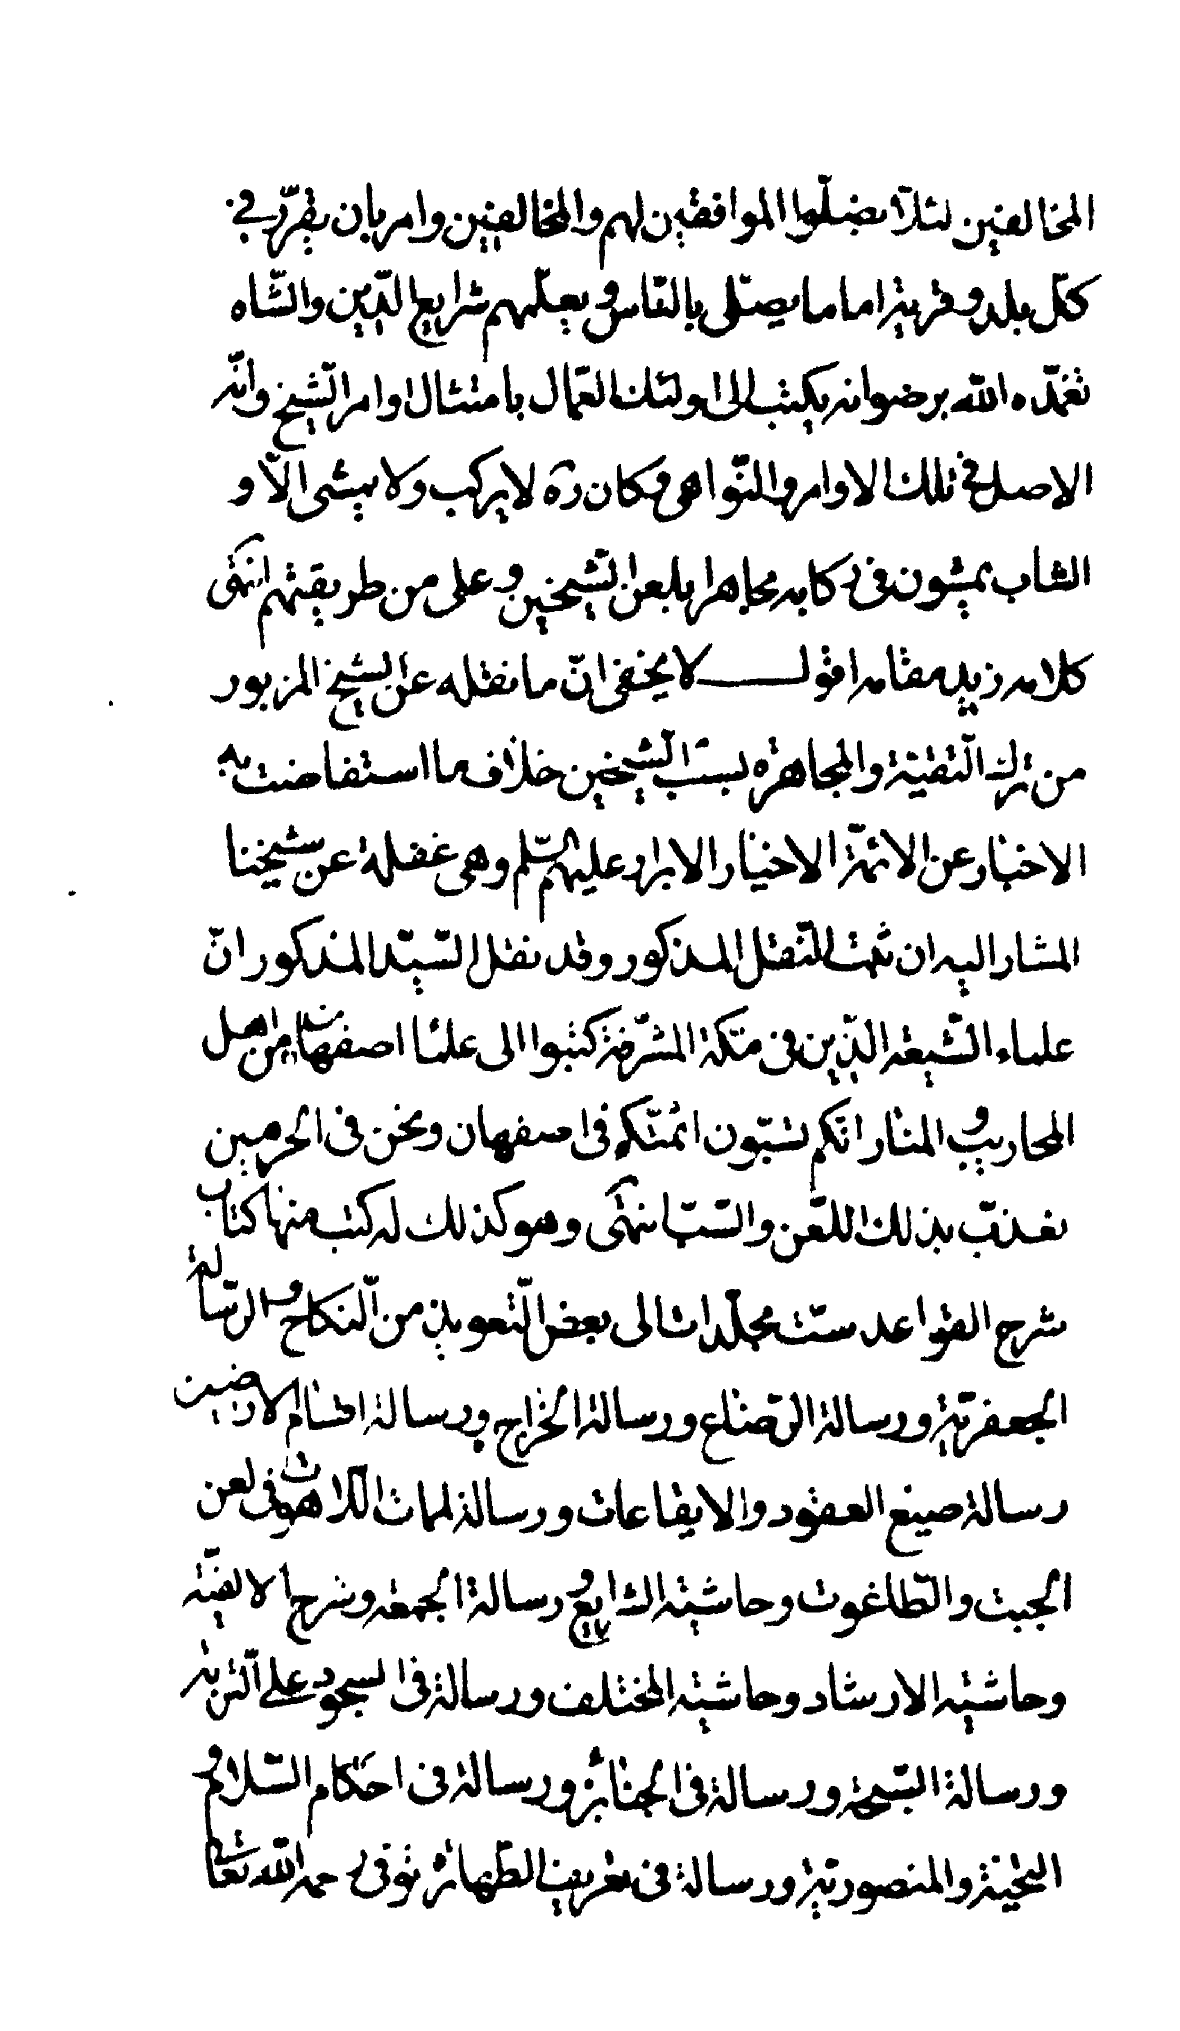 المخالفين لئلا يضلّوا الموافقين لهم والمخالفين وامر بان يقرّر في
كلّ بلد وقرية اماما يصلّى بالنّاس ويعلّمهم شرايع الدّين والشّاه
تغمّده الله برضوانه يكتب الى اولئك العمّال بامتثال اوامر الشّيخ وانّه
الاصل في تلك الاوامر والنّواهى وكان ره لا يركب ولا يمشى الّا و
الشاب يمشون في ركابه مجاهرا بلعن الشّيخين وعلى من طريقتهم انتهى
كلامه زيد مقامه اقول لا يخفى انّ ما نقله عن الشيخ المزبور
من ترك التّقيّة والمجاهرة بسبّ الشّيخين خلاف ما استفاضت به
الاخبار عن الائمّة الاخيار الابرار عليهم السّلم وهى غفلة عن شيخنا
المشار اليه ان ثبت النّقل المذكور وقد نقل السّيّد المذكور انّ
علماء الشّيعة الّذين في مكّة المشرّفة كتبوا الى علماء اصفهان من اهل
المحاريب والمنابر انّكم تسبّون ائمّتكم في اصفهان ونحن في الحرمين
نعذّب بذلك اللّعن والسّبّ انتهى وهو كذلك له كتب منها كتاب
شرح القواعد ستّ مجلّدات الى بعض التّعويذ من النّكاح والرّسالة
الجعفريّة ورسالة الرّضاع ورسالة الخراج ورسالة اقسام الارضين
رسالة صيغ العقود والايقاعات ورسالة نفحات اللّاهوت في لعن
الجبت والطّاغوت وحاشية الشرايع ورسالة الجمعة وشرح الالفيّة
وحاشية الارشاد وحاشية المختلف ورسالة في السجود على التّربة
ورسالة السّبحة ورسالة في الجنائز ورسالة في احكام السّلام و
النّجفيّة والمنصوريّة ورسالة في تعريف الطّهارة توفى رحمه الله تعالى